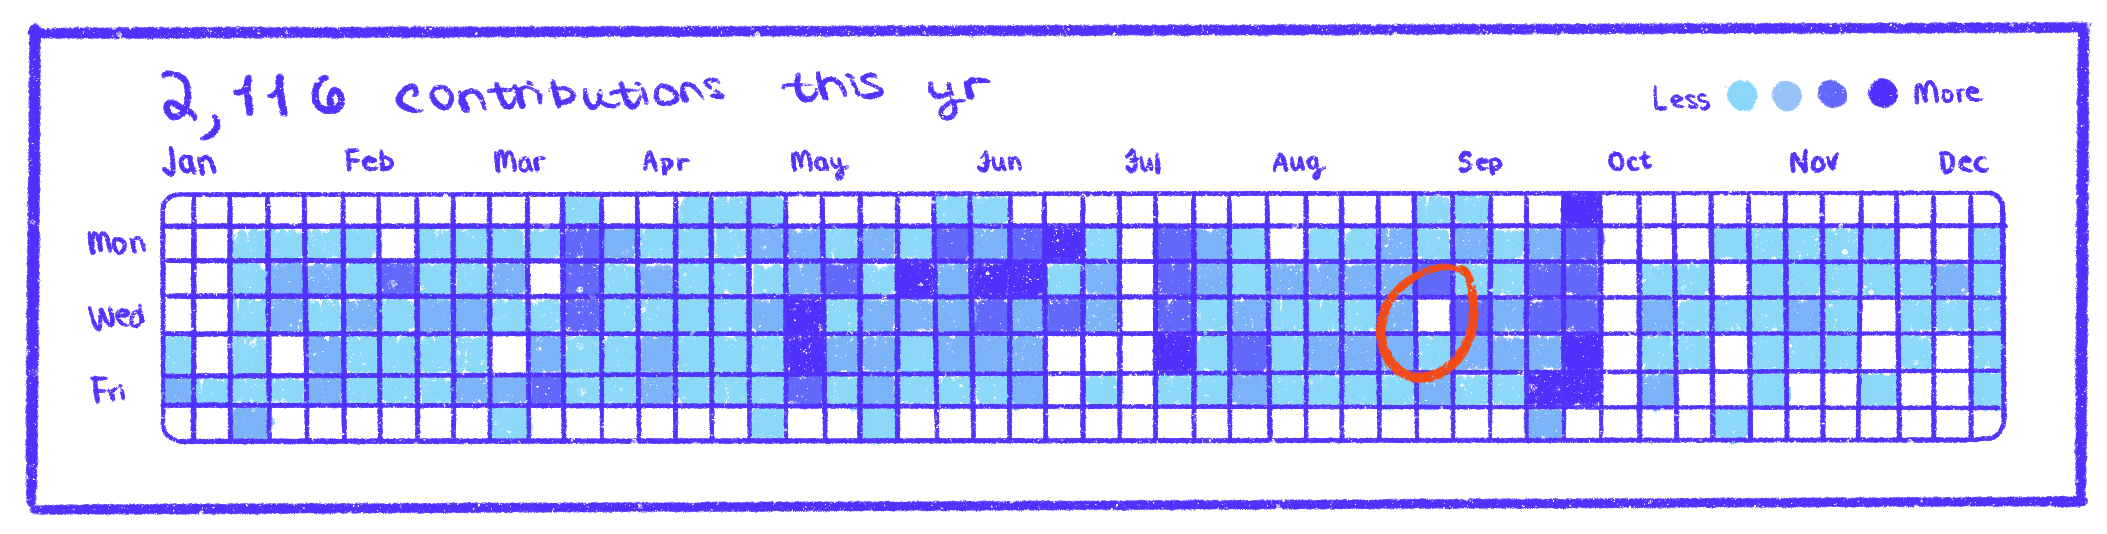 2,116 contributions this yr
Less More
Jan Feb Mar Apr May Jun Jul Aug Sep Oct Nov Dec
Mon
Wed
Fri